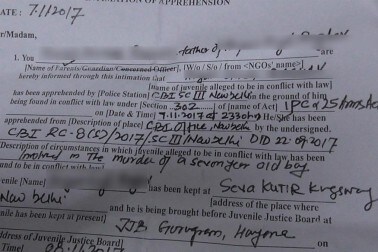 OF APPREHENSION
DATE : 7.11.2017
r/Madam,
1. You father of are
[Name of Parents/Guardian/Concerned Officer], [W/o / S/o / from <NGOs' name>]
hereby informed through this intimation that
[Name of juvenile alleged to be in conflict with law]
has been apprehended by [Police Station] CBI SC III New Delhi on the ground of him
being found in conflict with law under [Section 302 of [name of Act] IPC & 25 Arms Act
on [Date & Time] 7.11.2017 at 2330 hrs He/She has been
apprehended from [Description of place] CBI Office, New Delhi by the undersigned.
CBI RC-8(S)/2017/SC III/New Delhi DTD 22.09.2017
Description of circumstances in which juvenile alleged to be in conflict with law has been
involved in The murder of a seven year old boy
and to be in conflict with law]
enile [Name] has been kept at Seva Kutir Kingsway
New Delhi [address of the place where
nile has been kept at present] and he is being brought before Juvenile Justice Board at
JJB Gurugram, Haryana on
of Juvenile Justice Board]
Time]